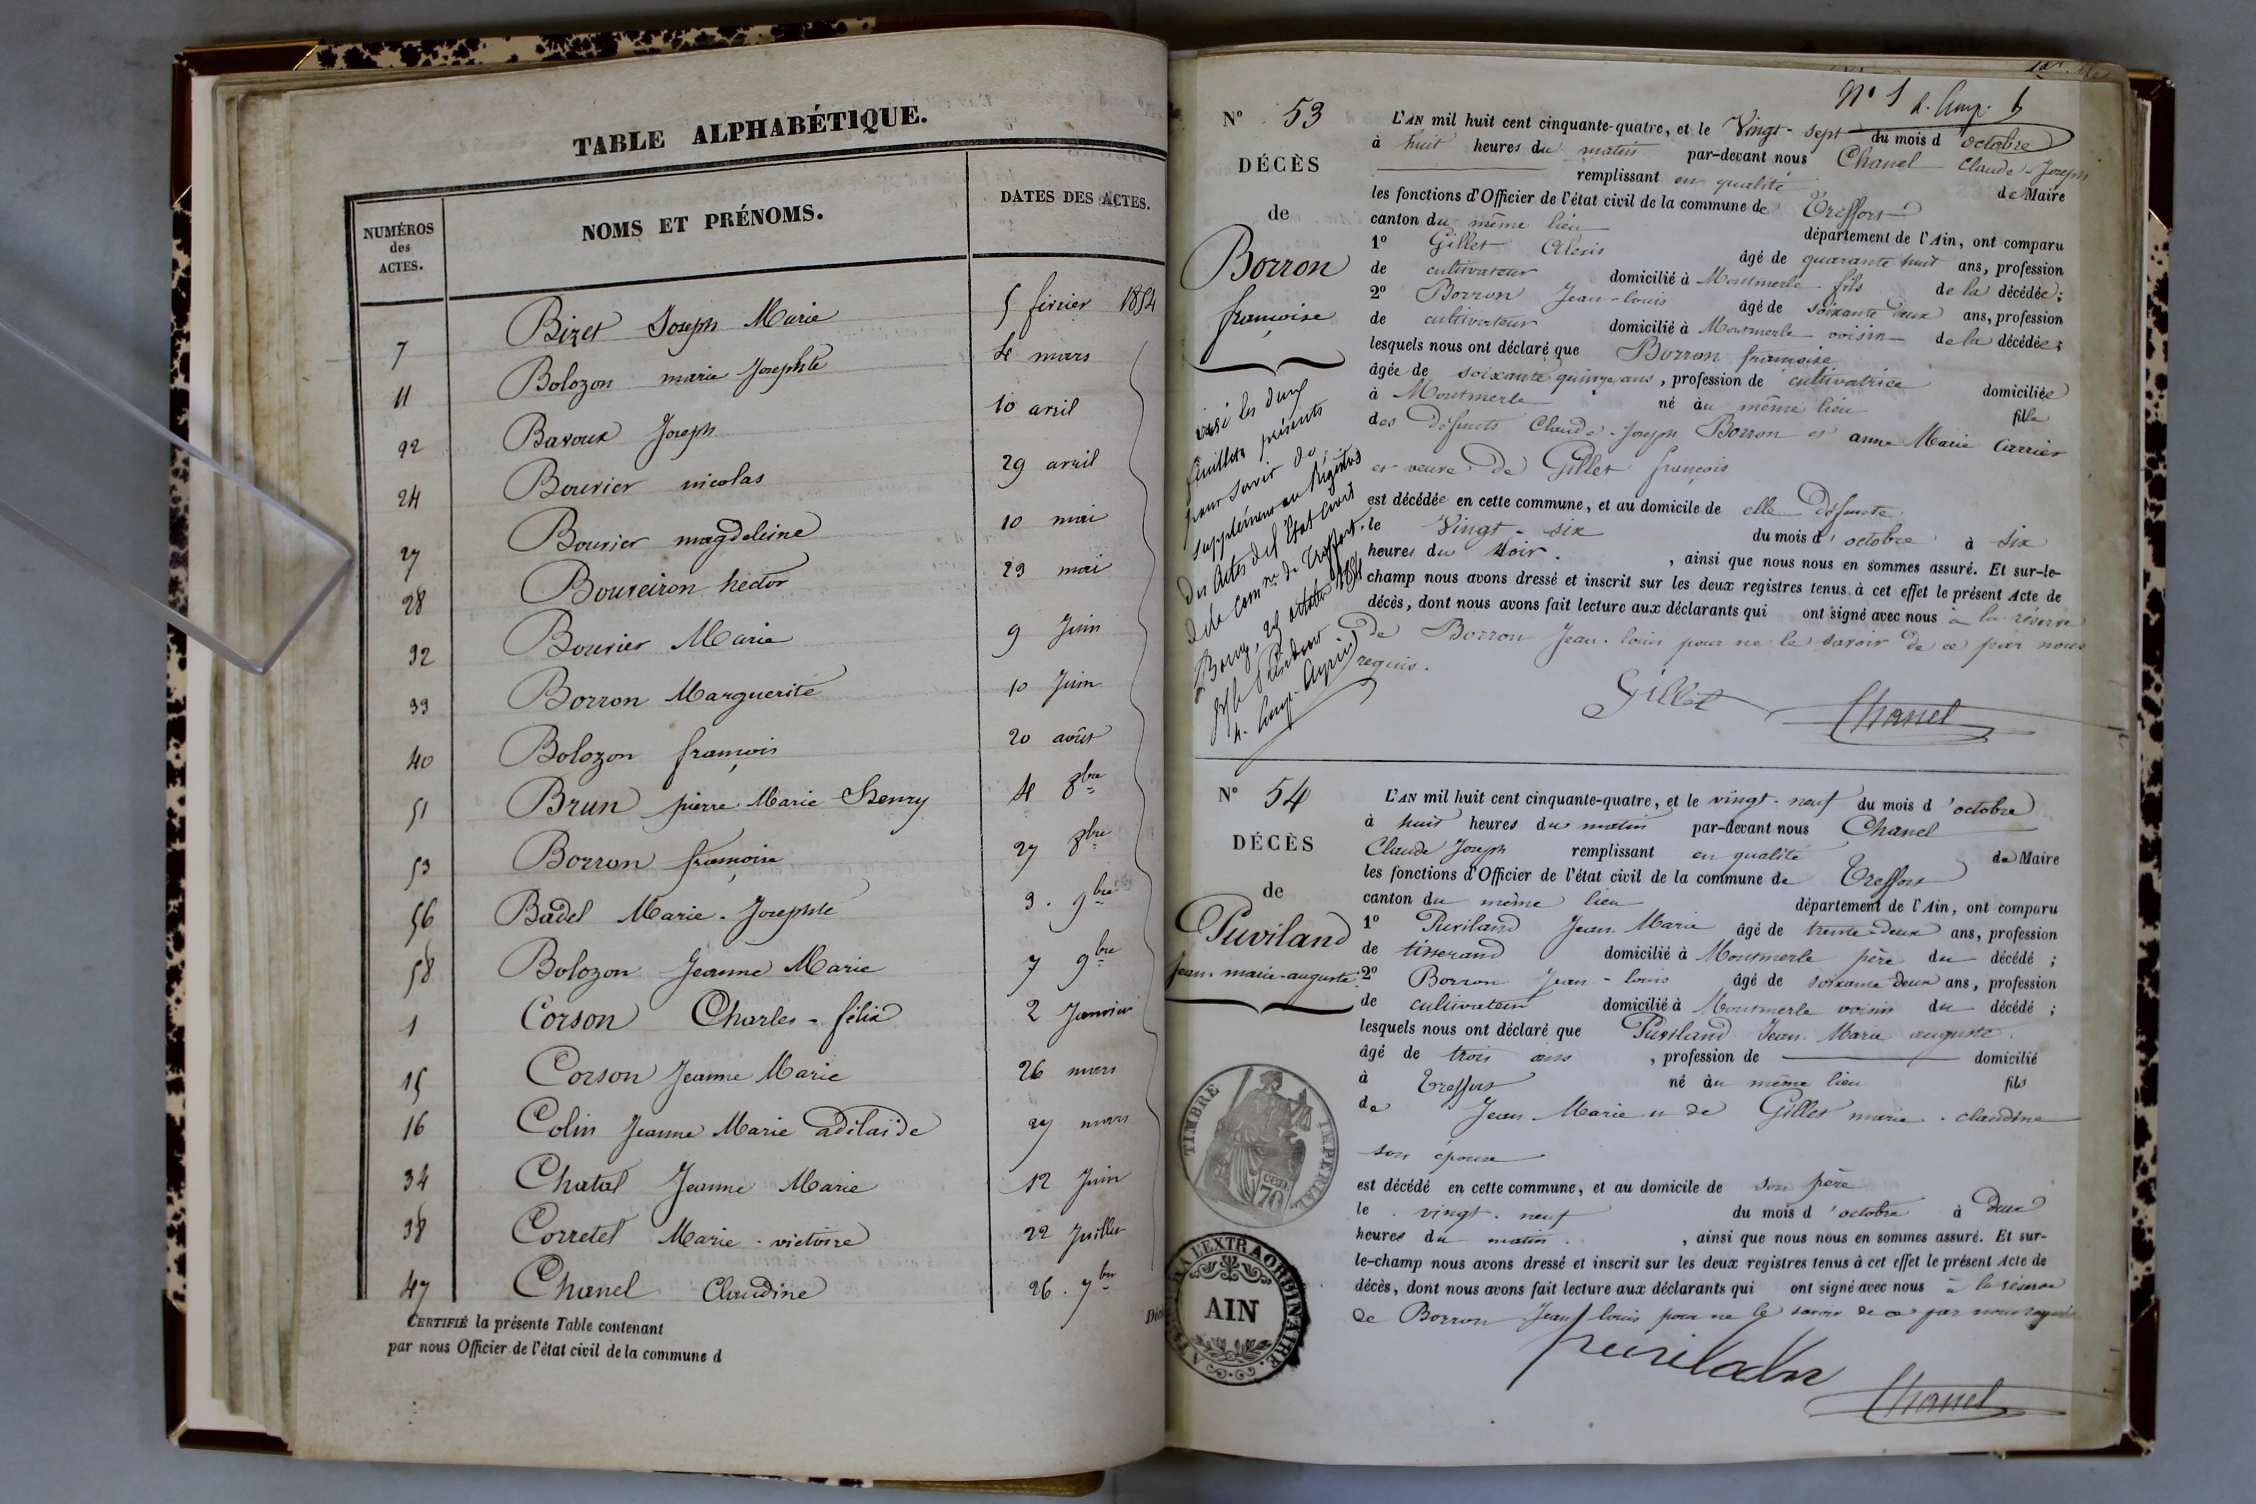 TABLE ALPHABÉTIQUE.
NUMÉROS des ACTES.
NOMS ET PRÉNOMS.
DATES DES ACTES.
7 Bizet Joseph Marie 5 février 1854
11 Bolozon marie Josephte 4 mars
22 Bavoux Joseph 10 avril
24 Bouvier nicolas 29 avril
27 Bouvier magdeleine 10 mai
28 Bouveiron hector 23 mai
32 Bouvier Marie 9 Juin
33 Borron Marguerite 10 Juin
40 Bolozon françois 20 août
51 Brun pierre Marie Henry 4 8bre
53 Borron françoise 27 8bre
56 Badel Marie-Josephte 3. 9bre
58 Bolozon Jeanne Marie 7 9bre
1 Corson Charles-félix 2 Janvier
15 Corson Jeanne Marie 26 mars
16 Colin Jeanne Marie adélaïde 27 mars
34 Chatal Jeanne Marie 12 Juin
38 Corretel Marie-victoire 22 Juillet
47 Chanel Claudine 26. 7bre
CERTIFIÉ la présente Table contenant
par nous Officier de l'état civil de la commune d
N° 1
N° 53
DÉCÈS
de
Borron
françoise
visé les deux
feuillets présents
pour servir de
supplément au Registre
des Actes de l'État Civil
de la comne de Treffort.
Bourg, octobre 1854
L'AN mil huit cent cinquante-quatre, et le Vingt-sept du mois d'octobre
à huit heures du matin par-devant nous Chanel Claude-Joseph
remplissant en qualité de Maire
les fonctions d'Officier de l'état civil de la commune de Treffort
canton du même lieu département de l'Ain, ont comparu
1° Gillet Alexis âgé de quarante huit ans, profession
de cultivateur domicilié à Montmerle fils de la décédée;
2° Borron Jean-louis âgé de soixante deux ans, profession
de cultivateur domicilié à Montmerle voisin de la décédée;
lesquels nous ont déclaré que Borron françoise
âgée de soixante quinze ans, profession de cultivatrice domiciliée
à Montmerle né au même lieu fille
des défunts Claude-Joseph Borron et anne Marie Carrier
et veuve de Gillet françois
est décédée en cette commune, et au domicile de elle défunte
le Vingt-six du mois d'octobre à six
heures du soir., ainsi que nous nous en sommes assuré. Et sur-le-
champ nous avons dressé et inscrit sur les deux registres tenus à cet effet le présent Acte de
décès, dont nous avons fait lecture aux déclarants qui ont signé avec nous à la réserve
de Borron Jean-louis pour ne le savoir de ce par nous
requis.
Gillet Chanel
N° 54
DÉCÈS
de
Puviland
Jean-marie-auguste
L'AN mil huit cent cinquante-quatre, et le vingt-neuf du mois d'octobre
à huit heures du matin par-devant nous Chanel
Claude Joseph remplissant en qualité de Maire
les fonctions d'Officier de l'état civil de la commune de Treffort
canton du même lieu département de l'Ain, ont comparu
1° Puviland Jean Marie âgé de trente-deux ans, profession
de tisserand domicilié à Montmerle père du décédé;
2° Borron Jean-louis âgé de soixante deux ans, profession
de cultivateur domicilié à Montmerle voisin du décédé;
lesquels nous ont déclaré que Puviland Jean Marie auguste.
âgé de trois ans, profession de domicilié
à Treffort né au même lieu fils
de Jean-Marie et de Gillet marie-claudine
son épouse
est décédé en cette commune, et au domicile de son père
le vingt-neuf du mois d'octobre à deux
heures du matin., ainsi que nous nous en sommes assuré. Et sur-
le-champ nous avons dressé et inscrit sur les deux registres tenus à cet effet le présent Acte de
décès, dont nous avons fait lecture aux déclarants qui ont signé avec nous à la réserve
de Borron Jean louis pour ne le savoir de ce par nous requis
Chanel
TIMBRE IMPÉRIAL
CEN. 70
EXTRAORDINAIRE.
AIN